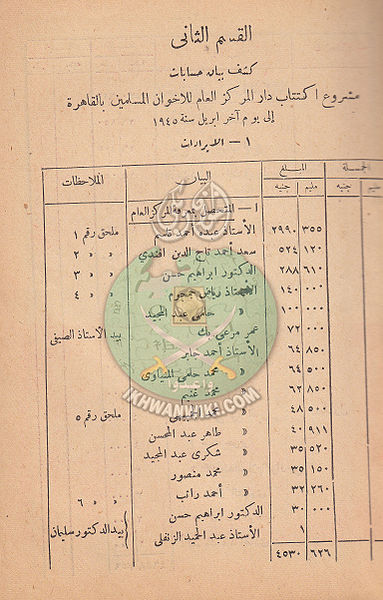 القسم الثانى
كشف بيان حسابات
مشروع اكتتاب دار المركز العام للاخوان المسلمين بالقاهرة
إلى يوم آخر ابريل سنة ١٩٤٥
١ - الايرادات
الجملة المبلغ البيان الملاحظات
جنيه مليم جنيه
١ - المتحصل بمعرفة المركز العام
٣٥٥ ٢٩٩٠ الأستاذ عبده أحمد قاسم ملحق رقم ١
١٢٠ ٥٢٤ سعد أحمد تاج الدين افندى » » ٢
٦١٠ ٢٨٨ الدكتور ابراهيم حسن » » ٣
٠٠٠ ١٤٠ الأستاذ رياض » » ٤
٠٠٠ ١٠٠ » حلمى عبد المجيد
٠٠٠ ٧٢ عمر مرعى بك بيد الأستاذ الصينى
٨٥٠ ٦٤ الأستاذ أحمد جابر
٥٠٠ ٦٤ » محمد حلمى المنياوى
٨٥٠ ٦٢ » محمد غنيم
٥٠٠ ٤٨ » محمد ملحق رقم ٥
٩١١ ٤٠ » طاهر عبد المحسن
٥٢٠ ٣٥ » شكرى عبد المجيد
١٥٠ ٣٥ » محمد منصور
٢٦٠ ٣٢ » أحمد راتب
٠٠٠ ٣٠ الدكتور ابراهيم حسن » » ٦
١ الأستاذ عبد الحميد الزنفلى بيد الدكتور سليمان
٦٢٦ ٤٥٣٠
واعدوا
IKHWANWIKI.COM